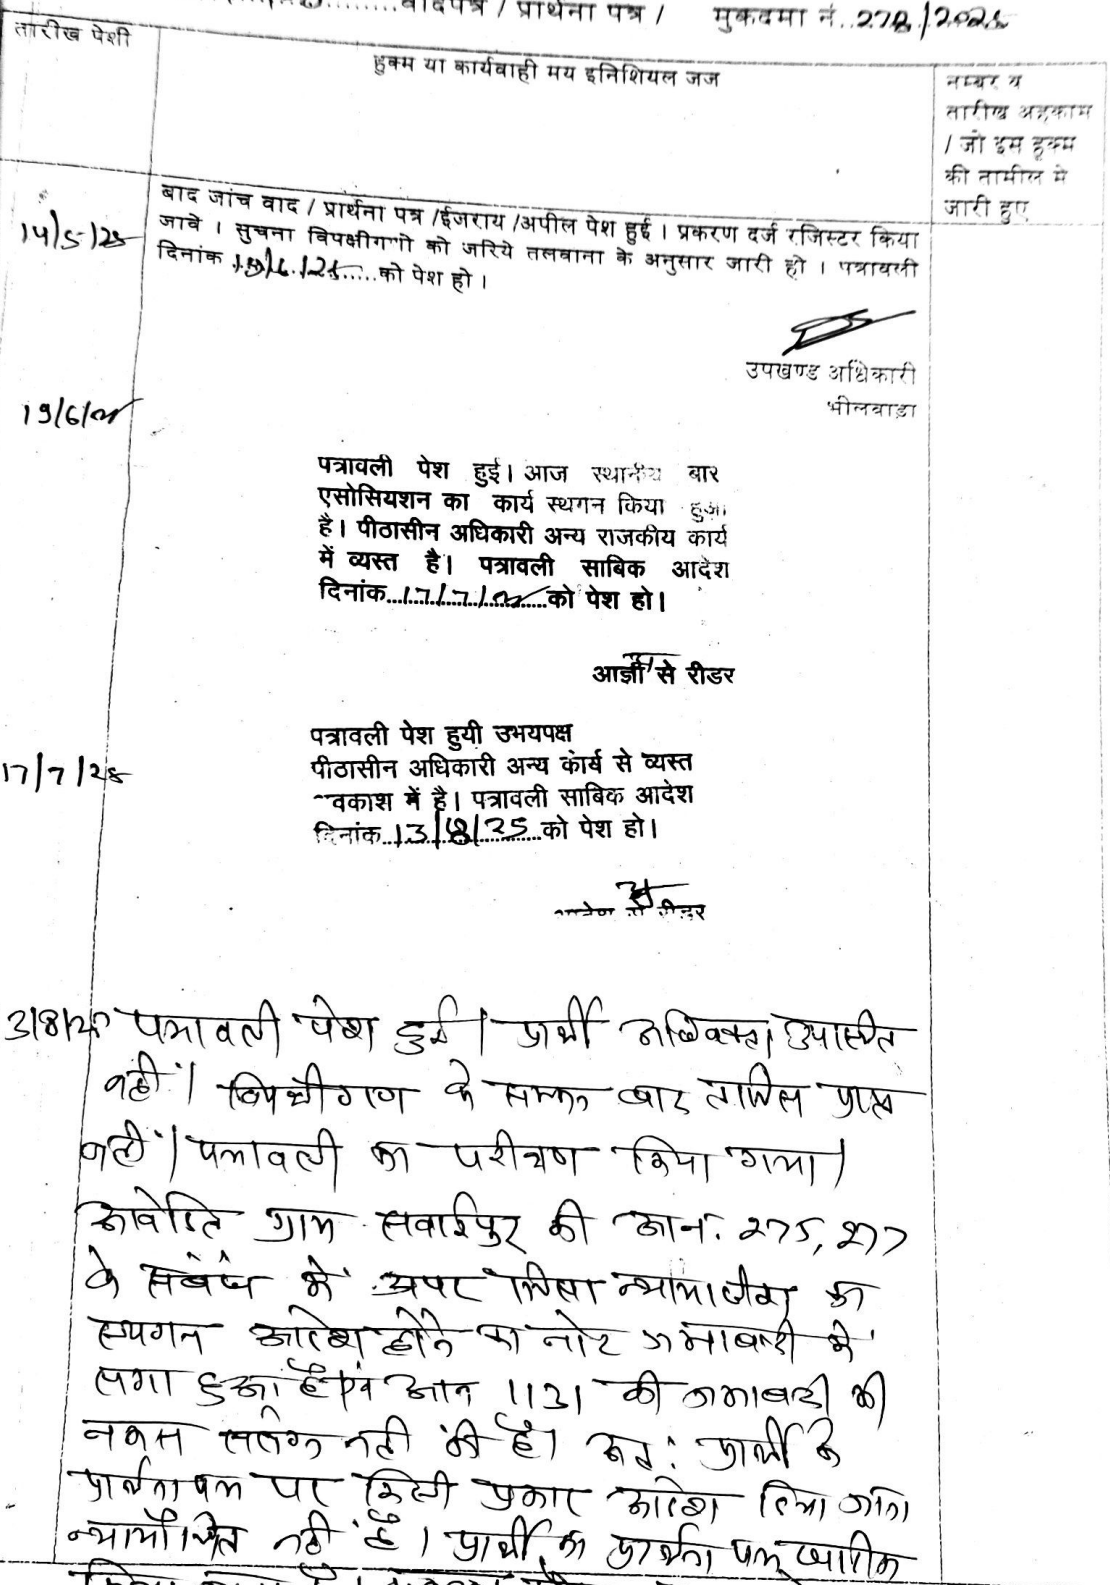 वादपत्र / प्रार्थना पत्र / मुकदमा नं. 278/2025
तारीख पेशी
हुक्म या कार्यवाही मय इनिशियल जज
नम्बर व
तारीख अहकाम
/ जो इस हुक्म
की तामील मे
जारी हुए
14/5/25
बाद जांच वाद / प्रार्थना पत्र /ईजराय /अपील पेश हुई । प्रकरण दर्ज रजिस्टर किया
जावे । सुचना विपक्षीगणो को जरिये तलवाना के अनुसार जारी हो । पत्रावली
दिनांक 19/6/25 को पेश हो ।
उपखण्ड अधिकारी
भीलवाड़ा
19/6/25
पत्रावली पेश हुई। आज स्थानीय बार
एसोसियशन का कार्य स्थगन किया हुआ
है। पीठासीन अधिकारी अन्य राजकीय कार्य
में व्यस्त है। पत्रावली साबिक आदेश
दिनांक 17/7/25 को पेश हो।
आज्ञा से रीडर
17/7/25
पत्रावली पेश हुयी उभयपक्ष
पीठासीन अधिकारी अन्य कार्य से व्यस्त
वकाश में है। पत्रावली साबिक आदेश
दिनांक 13/8/25 को पेश हो।
रीडर
3/8/25 पत्रावली पेश हुई। प्रार्थी अधिवक्ता उपस्थित
नहीं। विपक्षीगण के बाद तामिल प्राप्त
नहीं। पत्रावली का परीक्षण किया गया।
आवेदित ग्राम सवाईपुर की आ.नं. 275, 277
के संबंध में अपर जिला न्यायाधीश का
स्थगन आदेश होने का नोट जमाबन्दी में
लगा हुआ है एवं आ.न. 1131 की जमाबन्दी की
नकल संलग्न नहीं की है। अतः प्रार्थी के
प्रार्थना पत्र पर किसी प्रकार आदेश दिया जाना
न्यायोचित नहीं है। प्रार्थी का प्रार्थना पत्र खारिज